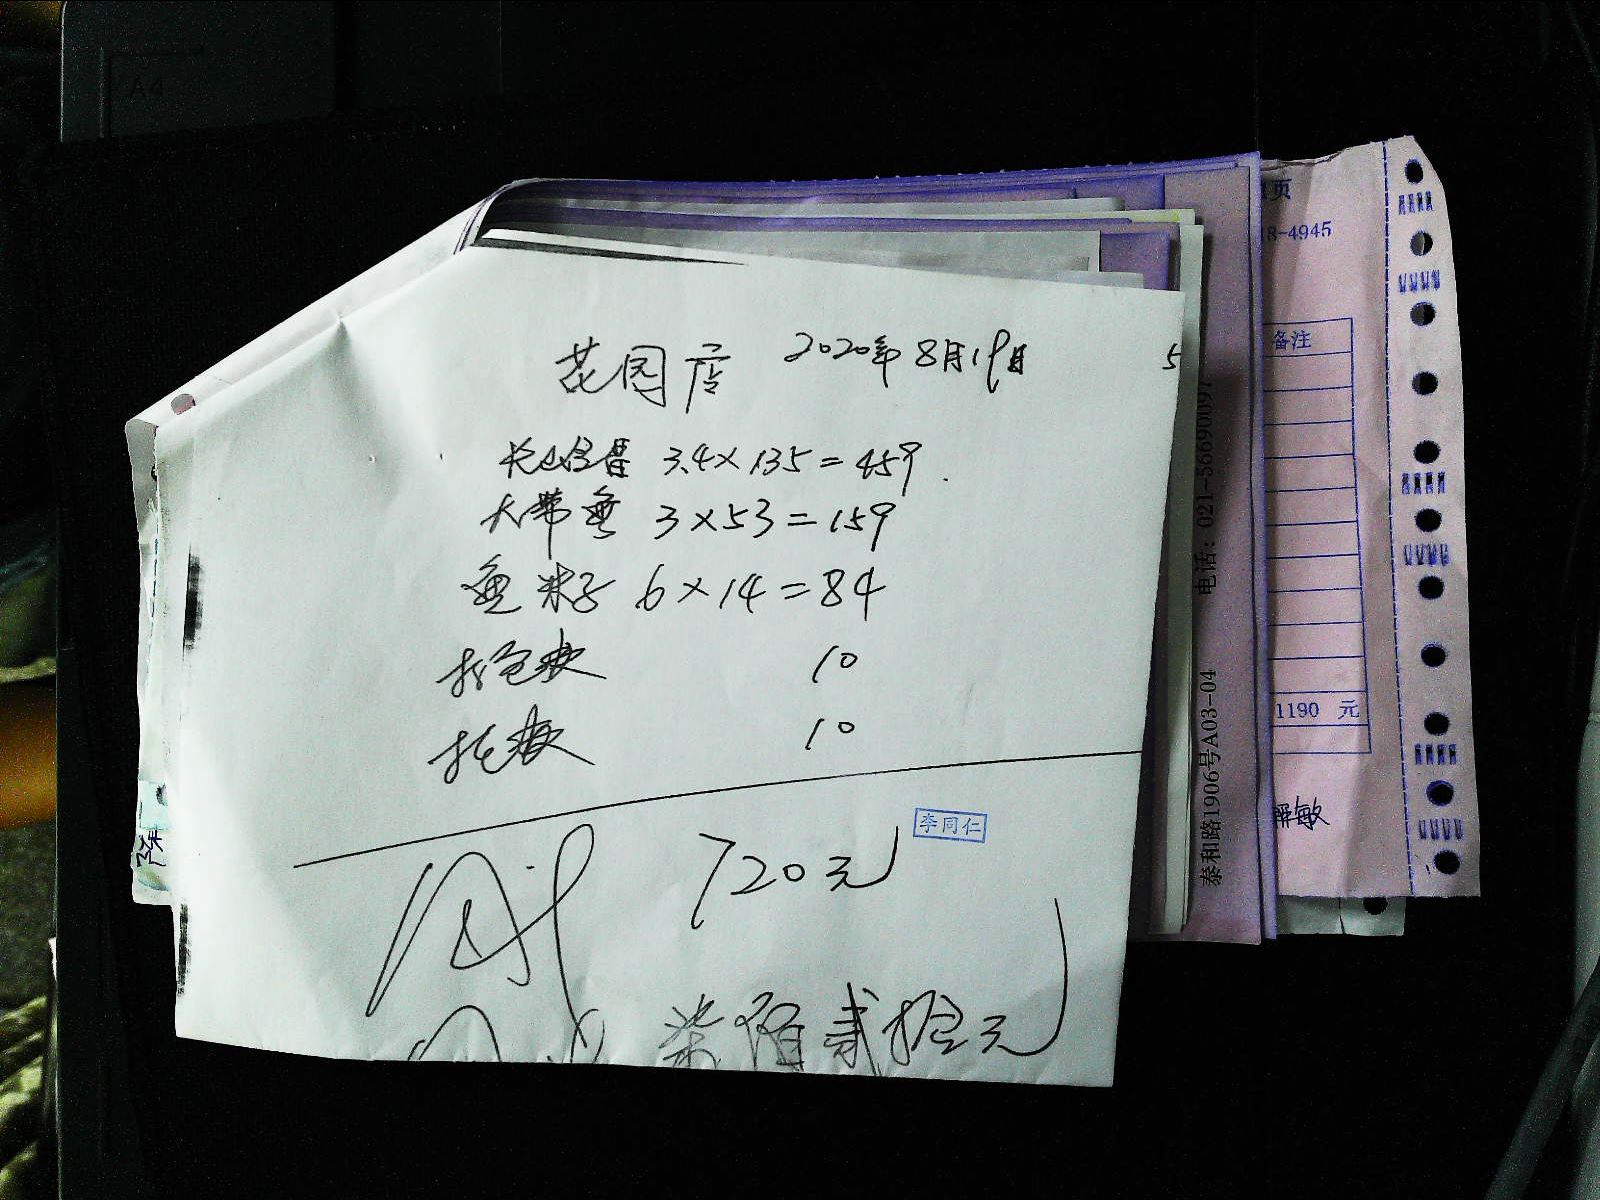 花园店 2020年8月19日
3.4×135=459
大带鱼 3×53=159
鱼籽 6×14=84
打包费 10
托费 10
720元
李同仁
柒佰贰拾元
5
A4
页
18-4945
备注
1190 元
敏
电话: 021-56690097
泰和路1906号A03-04